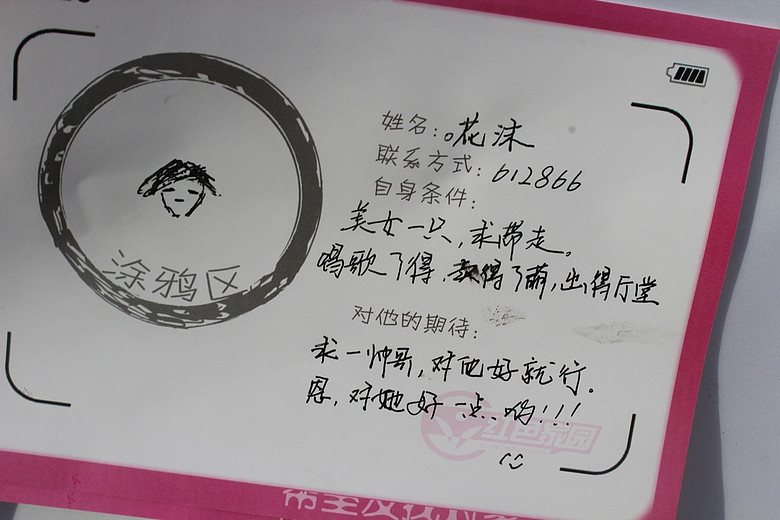 涂鸦区
姓名：花沫
联系方式：612866
自身条件：
美女一只，求带走。
唱歌了得，卖得了萌，出得厅堂
对他的期待：
求一帅哥，对他好就行。
恩，对她好一点哟!!!
红色家园